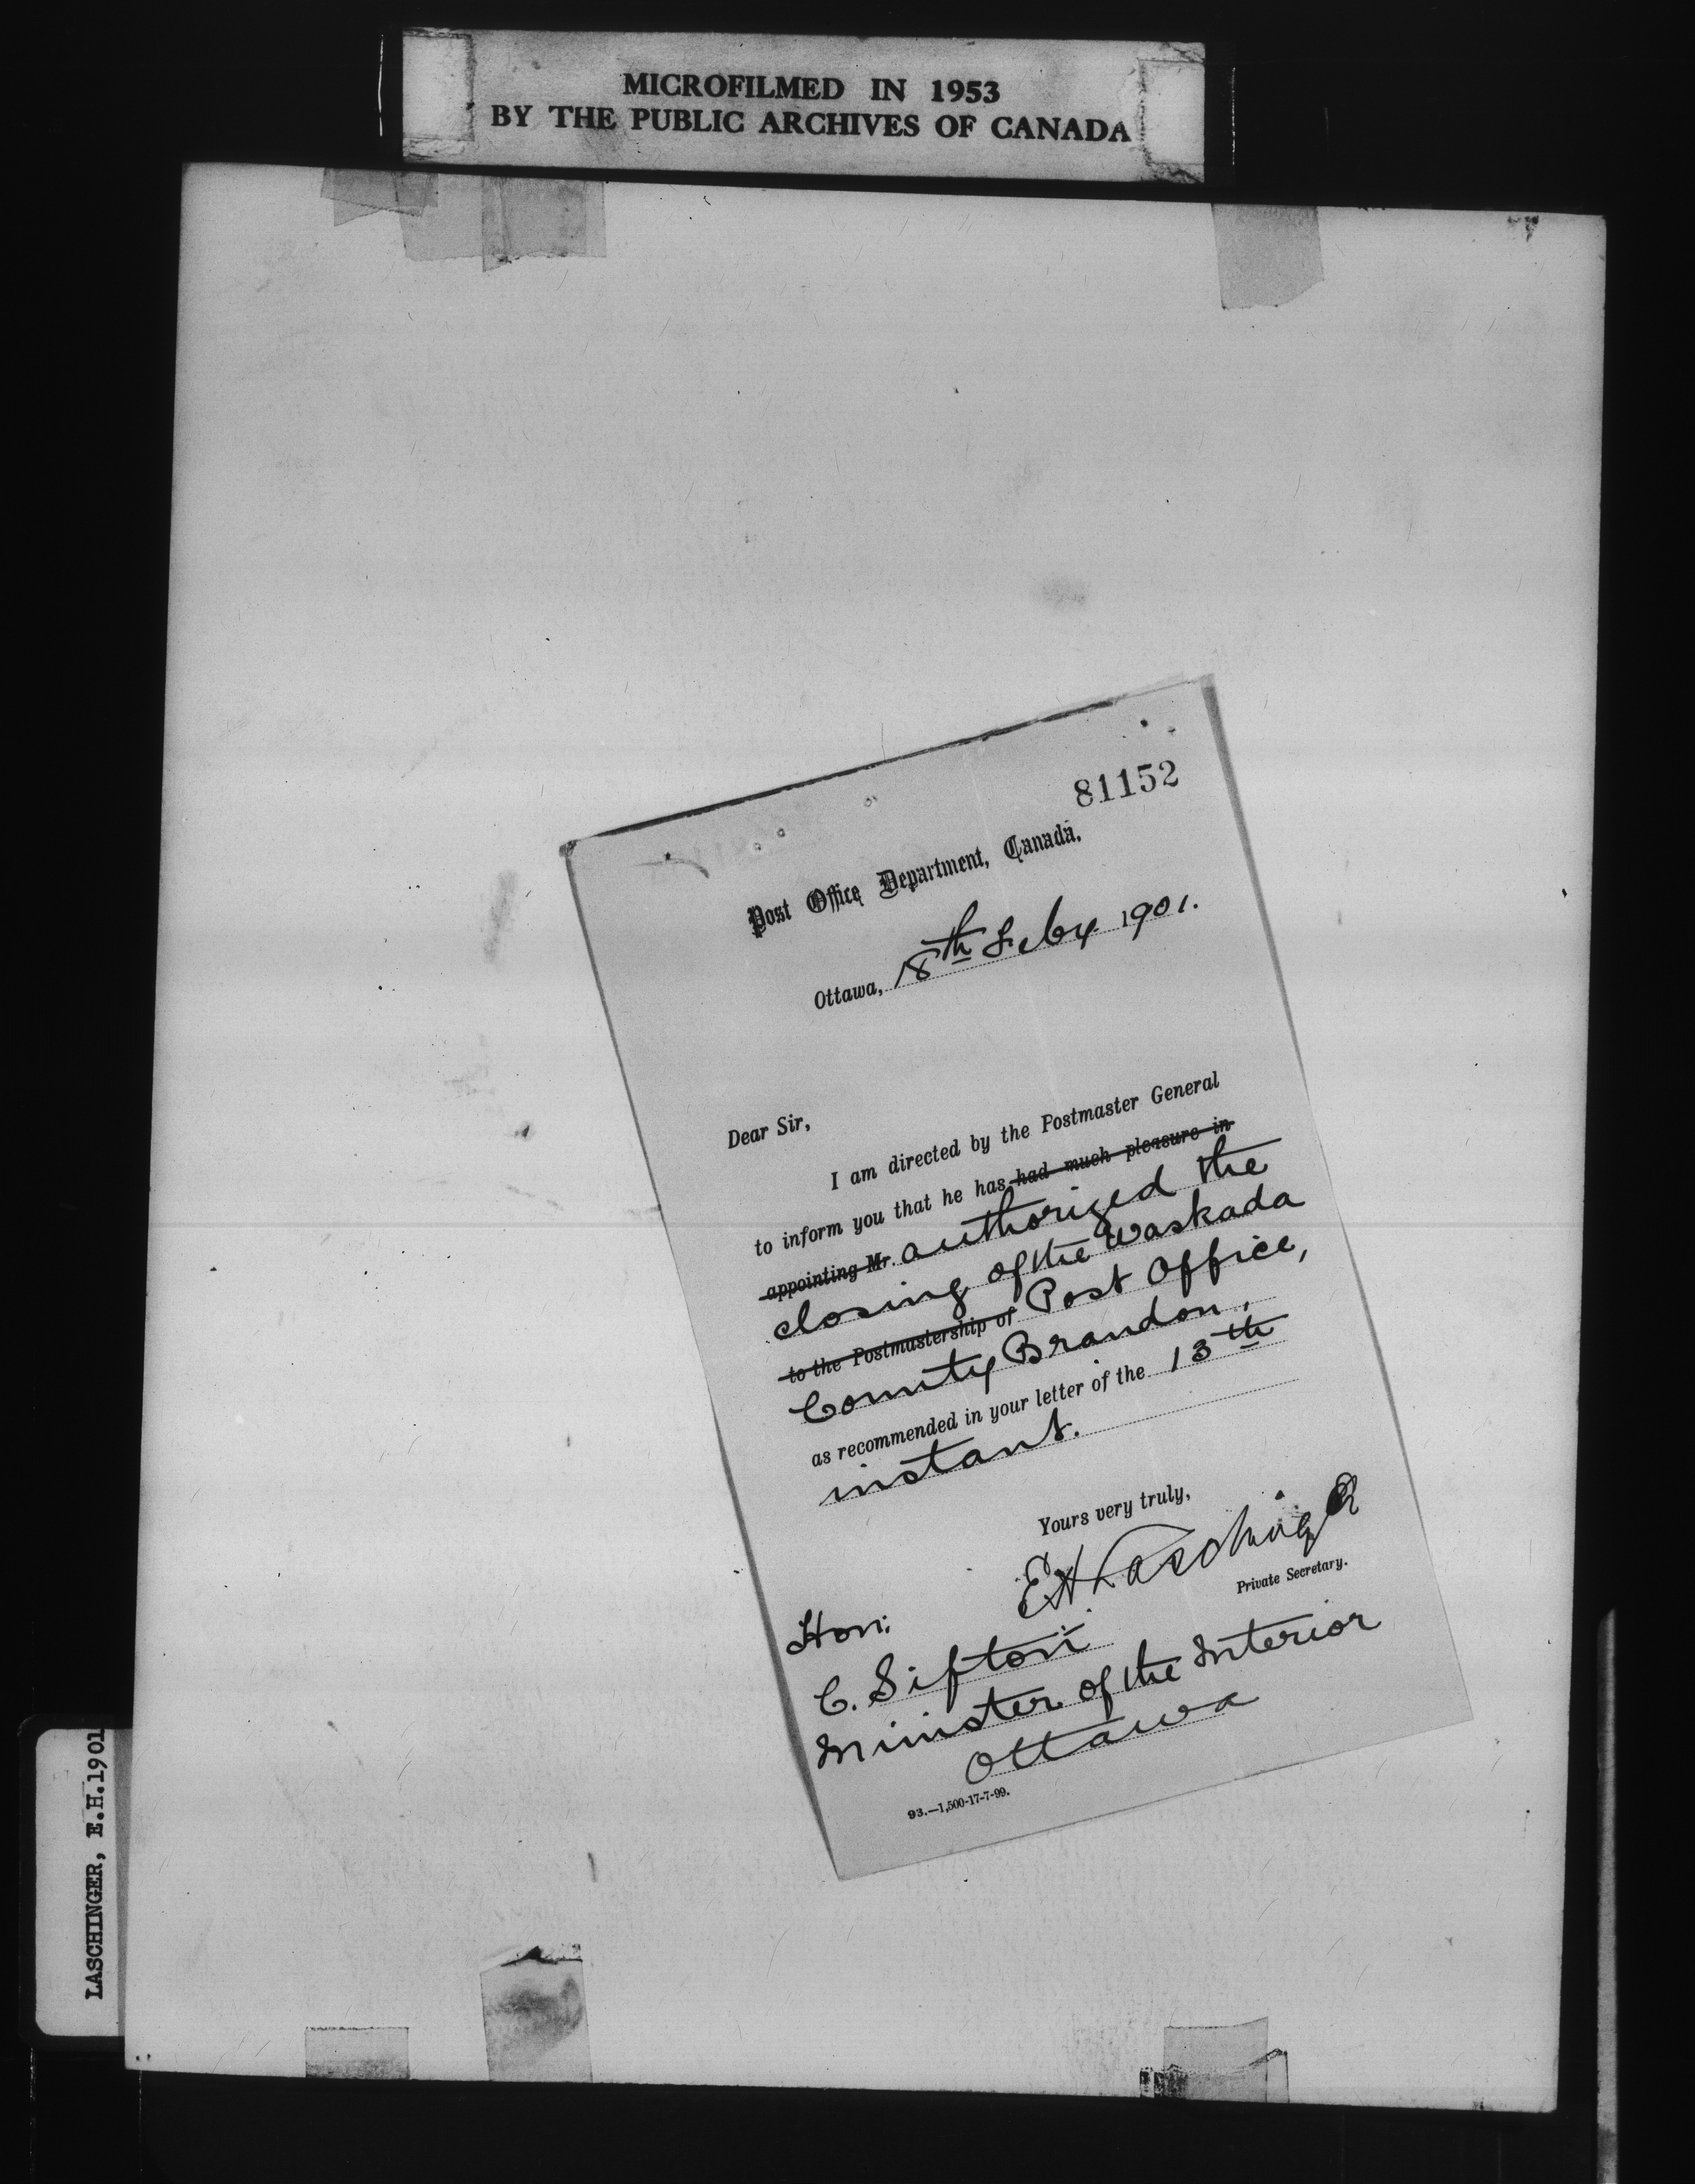 MICROFILMED IN 1953
BY THE PUBLIC ARCHIVES OF CANADA
81152
Post Office Department, Canada.
Ottawa, 18th Feby 1901.
Dear Sir,
I am directed by the Postmaster General
to inform you that he has had much pleasure in
appointing Mr. authorized the
closing of the Waskada
to the Postmastership of Post Office,
County Brandon,
as recommended in your letter of the 13th
instant.
Yours very truly,
EH Laschinger
Private Secretary.
Hon:
C. Sifton
Minister of the Interior
Ottawa
93.—1,500-17-7-99.
LASCHINGER, E.H.1901